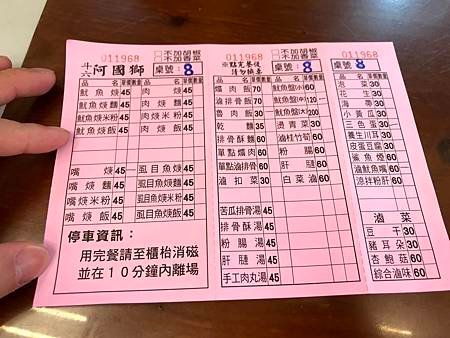 011968
□不加胡椒
□不加香菜
斗六 阿國獅 桌號:8
品名 單價 數量 品名 單價 數量
魷魚焿45 肉焿45
魷魚焿麵45 肉焿麵45
魷魚焿米粉45 肉焿米粉45
魷魚焿飯45 肉焿飯45
嘴焿45 虱目魚焿45
嘴焿麵45 虱目魚焿麵45
嘴焿米粉45 虱目魚焿米粉45
嘴焿飯45 虱目魚焿飯45
停車資訊:
用完餐請至櫃枱消磁
並在10分鐘內離場
011968
□不加胡椒
□不加香菜
※點完餐後
請勿換桌
桌號:8
品名 單價 數量 品名 單價 數量
爌肉飯70 魷魚盤(小)60
滷排骨飯70 魷魚盤(中)120
魯肉飯30 魷魚盤(大)200
乾麵35 燙青菜30
排骨酥麵60 滷桂竹筍60
單點爌肉60 粉腸60
單點滷排骨60 肝腱60
滷扣菜30 白菜滷60
苦瓜排骨湯45
排骨酥湯45
粉腸湯45
肝腱湯45
手工肉丸湯45
011968
桌號:8
品名 單價 數量
泡菜30
花生30
海帶30
小黃瓜30
三色蛋30
養生川耳30
皮蛋豆腐30
鯊魚煙60
滷魷魚嘴60
涼拌粉肝60
滷菜
豆干30
豬耳朵30
杏鮑菇60
綜合滷味60